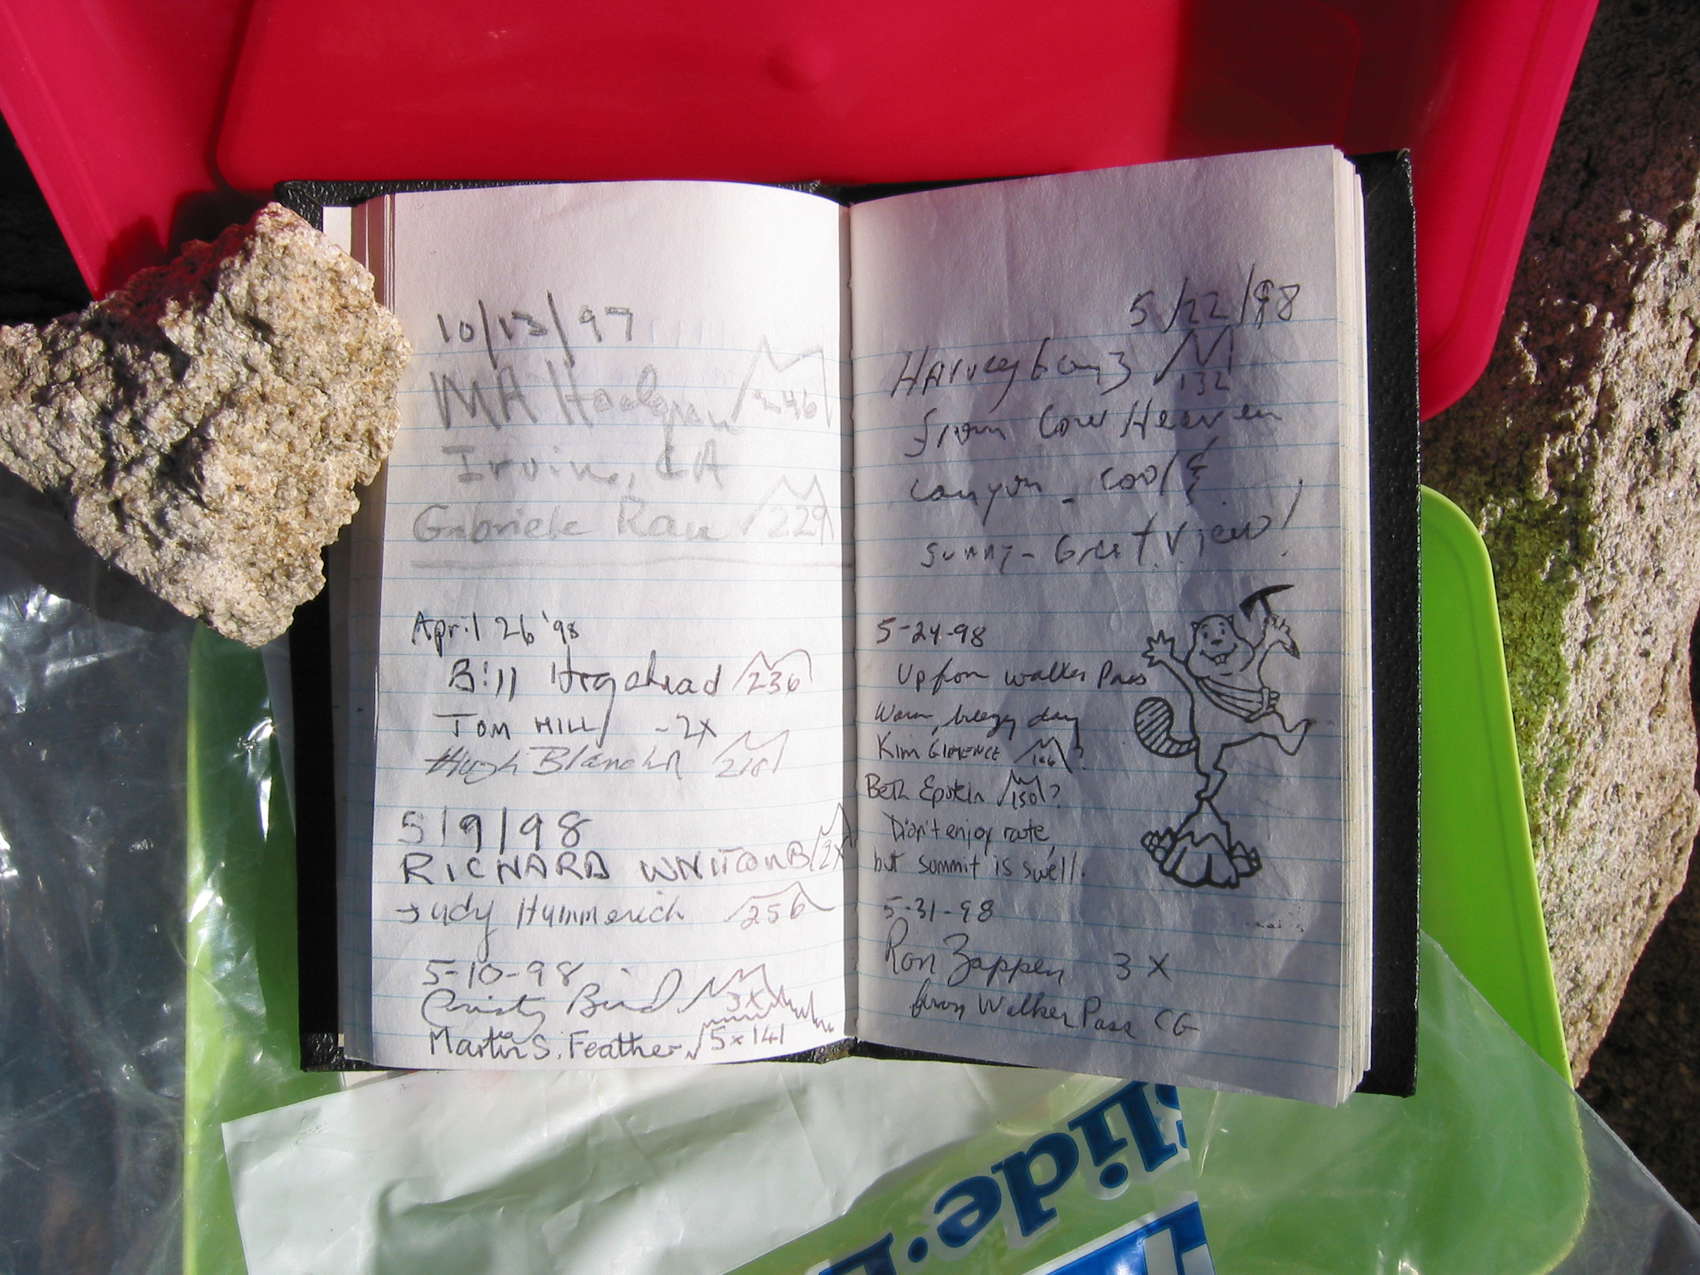 10/13/97
MA
Irvine, CA
Gabriele Rau 229
April 26 '98
Bill 236
TOM HILL - 2X
Hugh 218
5/9/98
RICHARD
Judy Hummerich 256
5-10-98
Christy Bird 3X
Martin S. Feather 5x141
5/22/98
132
from Cow Heaven
canyon - cool &
sunny - Great View!
5-24-98
Up from Walker Pass
Warm, breezy day
Kim 106?
Beth Epstein 150?
Didn't enjoy route,
but summit is swell.
5-31-98
Ron Zappen 3X
from Walker Pass CG
Slide